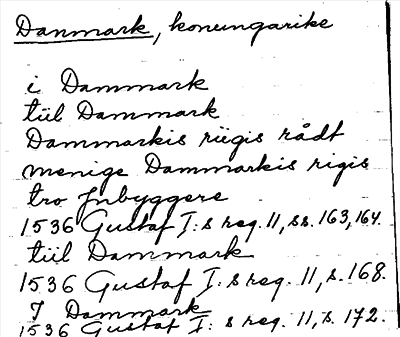 Danmark, konungarike
i Dammark
tüil Dammark
Dammarkis riigis rådt
menige Dammarkis rigis
tro Jnbyggere
1536 Gustaf I:s reg. 11, ss. 163, 164.
tiil Dammark
1536 Gustaf I:s reg. 11, s. 168.
I Dammark
1536 Gustaf I:s reg. 11, s. 172.